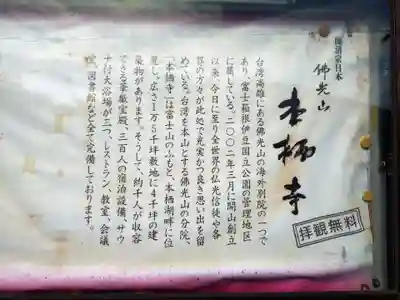 佛光山
本栖寺
拝観無料
台湾高雄にある佛光山の海外別院の一つで
あり、富士箱根伊豆国立公園の管理地区
に属している。二〇〇二年三月に開山創立
以来、今日に至り全世界の仏光信徒や各
界の方々が此処で充実かつ良き思い出を留
めている。台湾を本山とする佛光山の分院、
「本栖寺」は富士山のふもと、本栖湖畔に位
置し、広さ1万5千坪敷地に4千坪の建
築物があります。そうして、約千人が収容
できる華厳宝殿、三百人の宿泊設備、サウ
ナ付大浴場が二つ、レストラン、教室、会議
室、図書館など全て完備しております。